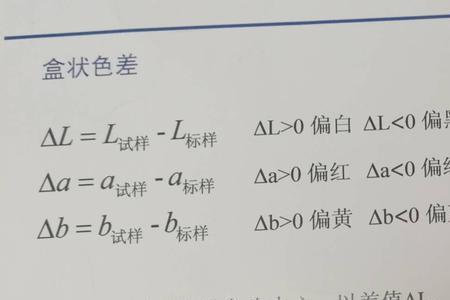 盒状色差
ΔL = L试样 - L标样 ΔL>0 偏白 ΔL<0 偏黑
Δa = a试样 - a标样 Δa>0 偏红 Δa<0 偏
Δb = b试样 - b标样 Δb>0 偏黄 Δb<0 偏